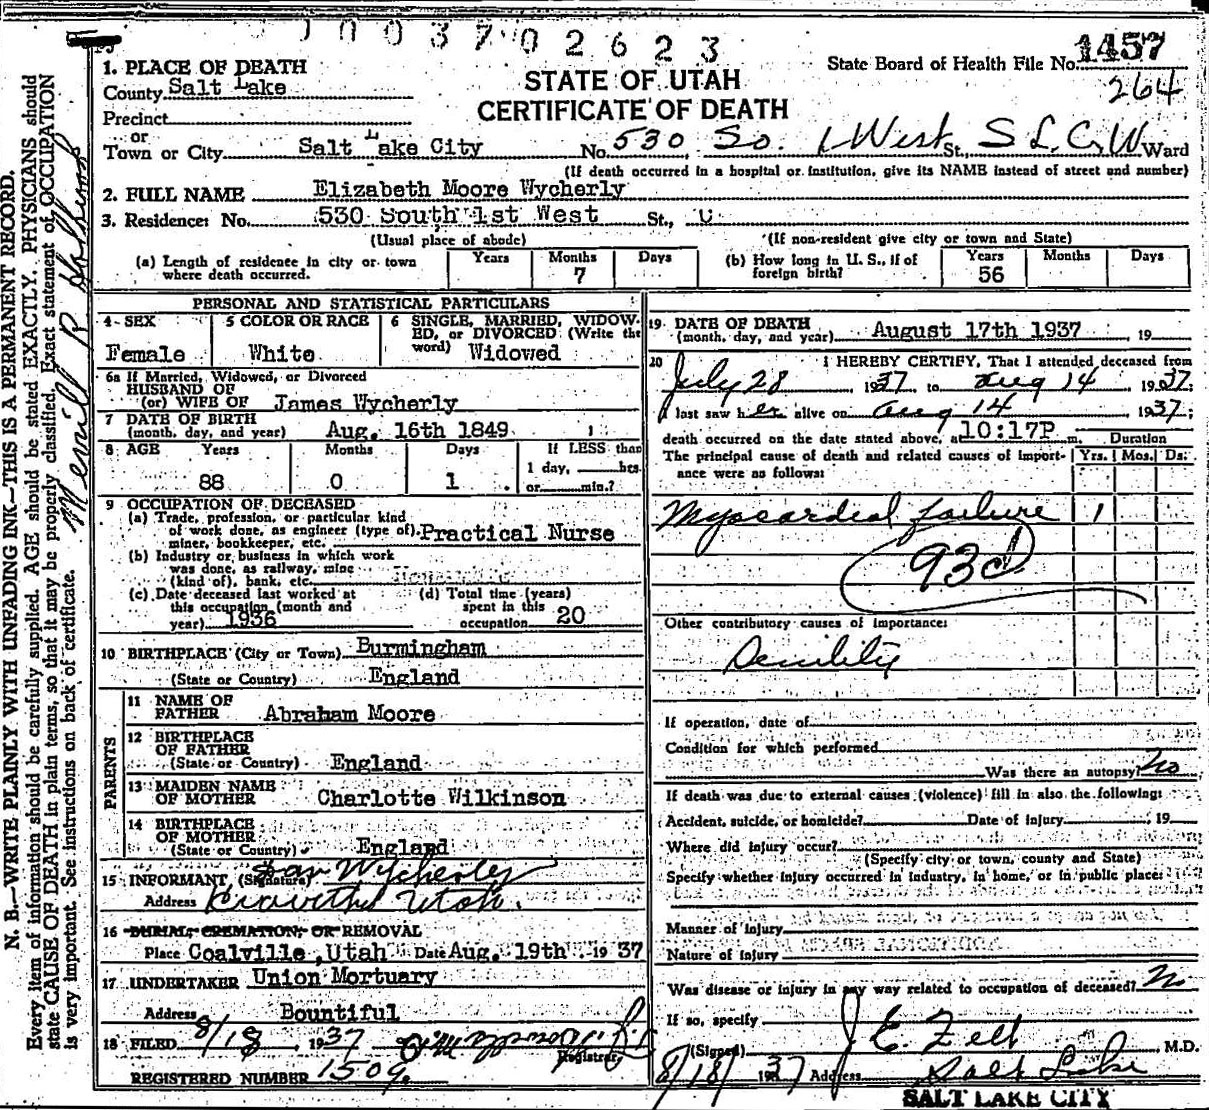 1003702623
1457
State Board of Health File No.
264
STATE OF UTAH
CERTIFICATE OF DEATH
1. PLACE OF DEATH
County Salt Lake
Precinct
or
Town or City Salt Lake City No. 530 So. 1 West St., S L. C, W Ward
(If death occurred in a hospital or institution, give its NAME instead of street and number)
2. FULL NAME Elizabeth Moore Wycherly
3. Residence: No. 530 South 1st West St., C
(Usual place of abode) (If non-resident give city or town and State)
(a) Length of residence in city or town where death occurred. Years Months 7 Days
(b) How long in U. S., if of foreign birth? Years 56 Months Days
PERSONAL AND STATISTICAL PARTICULARS
4 SEX Female
5 COLOR OR RACE White
6 SINGLE, MARRIED, WIDOWED, or DIVORCED (Write the word) Widowed
6a If Married, Widowed, or Divorced
HUSBAND OF
(or) WIFE OF James Wycherly
7 DATE OF BIRTH
(month, day, and year) Aug. 16th 1849
8 AGE Years 88 Months 0 Days 1
If LESS than 1 day, hrs. or min.?
9 OCCUPATION OF DECEASED
(a) Trade, profession, or particular kind
of work done, as engineer (type of). Practical Nurse
miner, bookkeeper, etc.
(b) Industry or business in which work
was done, as railway, mine
(kind of), bank, etc.
(c) Date deceased last worked at
this occupation (month and
year) 1936
(d) Total time (years)
spent in this
occupation 20
10 BIRTHPLACE (City or Town) Burmingham
(State or Country) England
PARENTS
11 NAME OF
FATHER Abraham Moore
12 BIRTHPLACE
OF FATHER
(State or Country) England
13 MAIDEN NAME
OF MOTHER Charlotte Wilkinson
14 BIRTHPLACE
OF MOTHER
(State or Country) England
15 INFORMANT (Signature) Wycherley
Address Utah.
16 BURIAL, CREMATION, OR REMOVAL
Place Coalville, Utah Date Aug. 19th 1937
17 UNDERTAKER Union Mortuary
Address Bountiful
18 FILED 8/18, 1937
Registrar
REGISTERED NUMBER 1509.
19 DATE OF DEATH
(month, day, and year) August 17th 1937, 19
20 I HEREBY CERTIFY, That I attended deceased from
July 28 1937 to Aug 14 1937;
I last saw her alive on Aug 14 1937;
death occurred on the date stated above, at 10:17P m.
Duration
Yrs. Mos. Ds.
The principal cause of death and related causes of importance were as follows:
Myocardial failure 1
93d
Other contributory causes of importance:
Senility
If operation, date of
Condition for which performed
Was there an autopsy? No
If death was due to external causes (violence) fill in also the following:
Accident, suicide, or homicide? Date of injury , 19
Where did injury occur?
(Specify city or town, county and State)
Specify whether injury occurred in industry, in home, or in public place:
Manner of Injury
Nature of Injury
Was disease or injury in any way related to occupation of deceased? No
If so, specify
(Signed) J. E. Felt, M.D.
8/18/ 1937 Address Salt Lake
SALT LAKE CITY
N. B.—WRITE PLAINLY WITH UNFADING INK—THIS IS A PERMANENT RECORD.
Every item of information should be carefully supplied. AGE should be stated EXACTLY. PHYSICIANS should
state CAUSE OF DEATH in plain terms, so that it may be properly classified. Exact statement of OCCUPATION
is very important. See instructions on back of certificate.
Merrill R